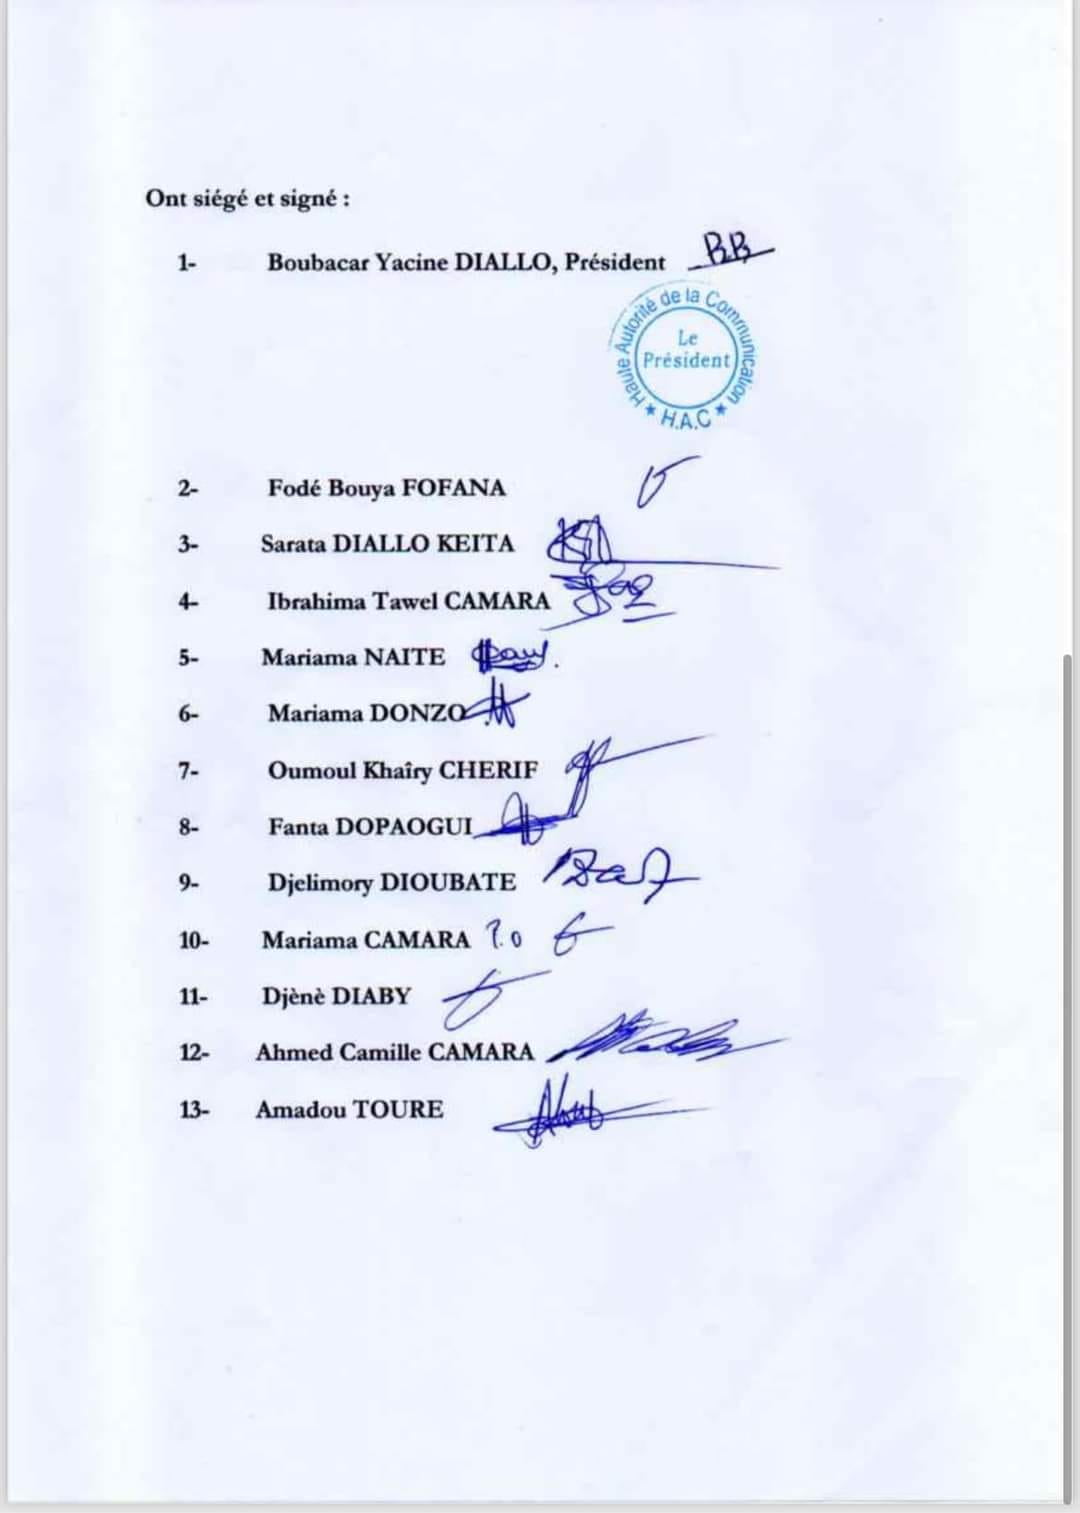 Ont siégé et signé :
1- Boubacar Yacine DIALLO, Président BB
Haute Autorité de la Communication
Le
Président
★ H.A.C ★
2- Fodé Bouya FOFANA
3- Sarata DIALLO KEITA
4- Ibrahima Tawel CAMARA
5- Mariama NAITE
6- Mariama DONZO
7- Oumoul Khaîry CHERIF
8- Fanta DOPAOGUI
9- Djelimory DIOUBATE
10- Mariama CAMARA P.O
11- Djènè DIABY
12- Ahmed Camille CAMARA
13- Amadou TOURE